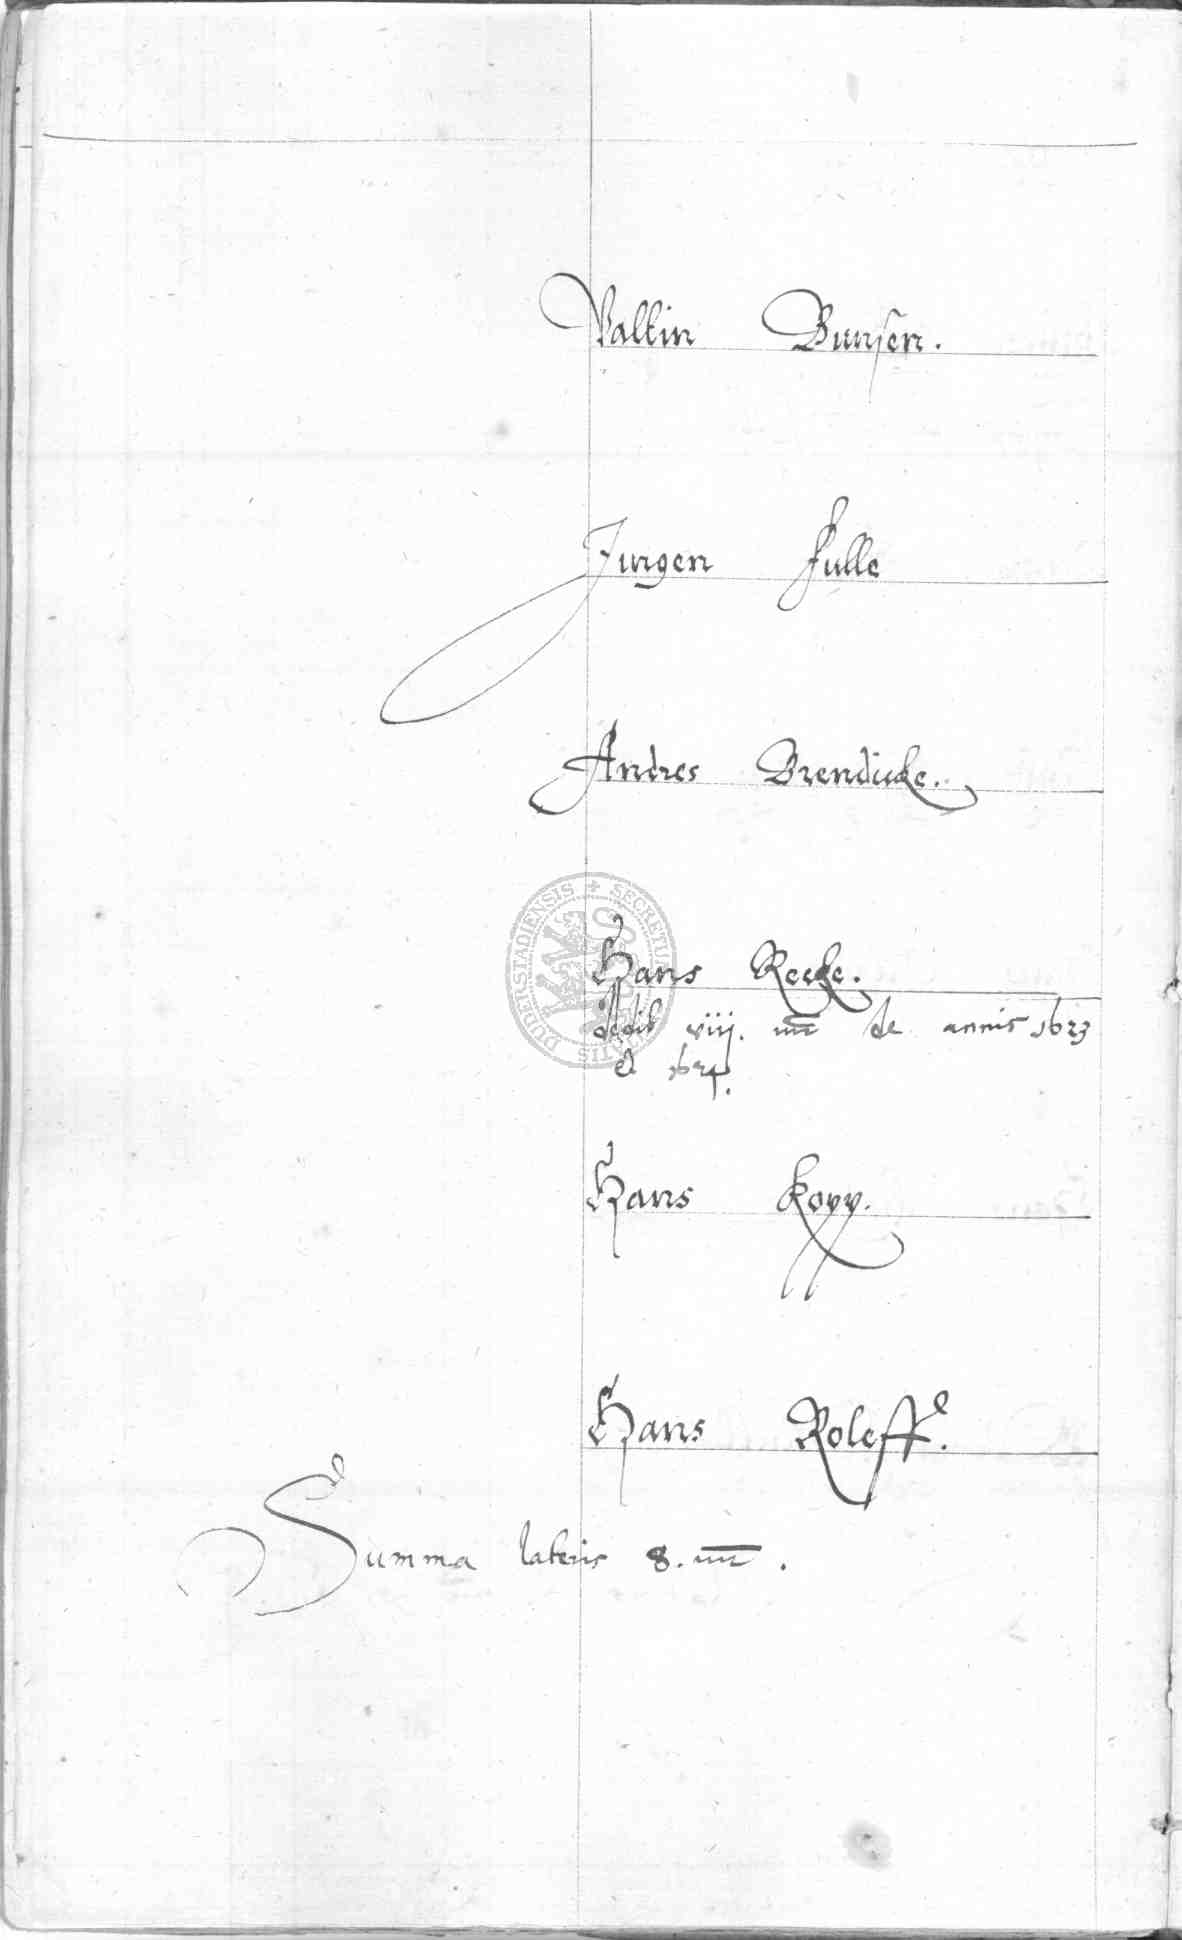 Valtin Bunsen.
Jurgen Fulle
Andres Brendicke.
Hans Recke.
dedit viij. mr de annis 1623
et 1624.
Hans Kopp.
Hans Roleff.
Summa lateris 8. mr.
SECRETUM CIVITATIS DUDERSTADIENSIS